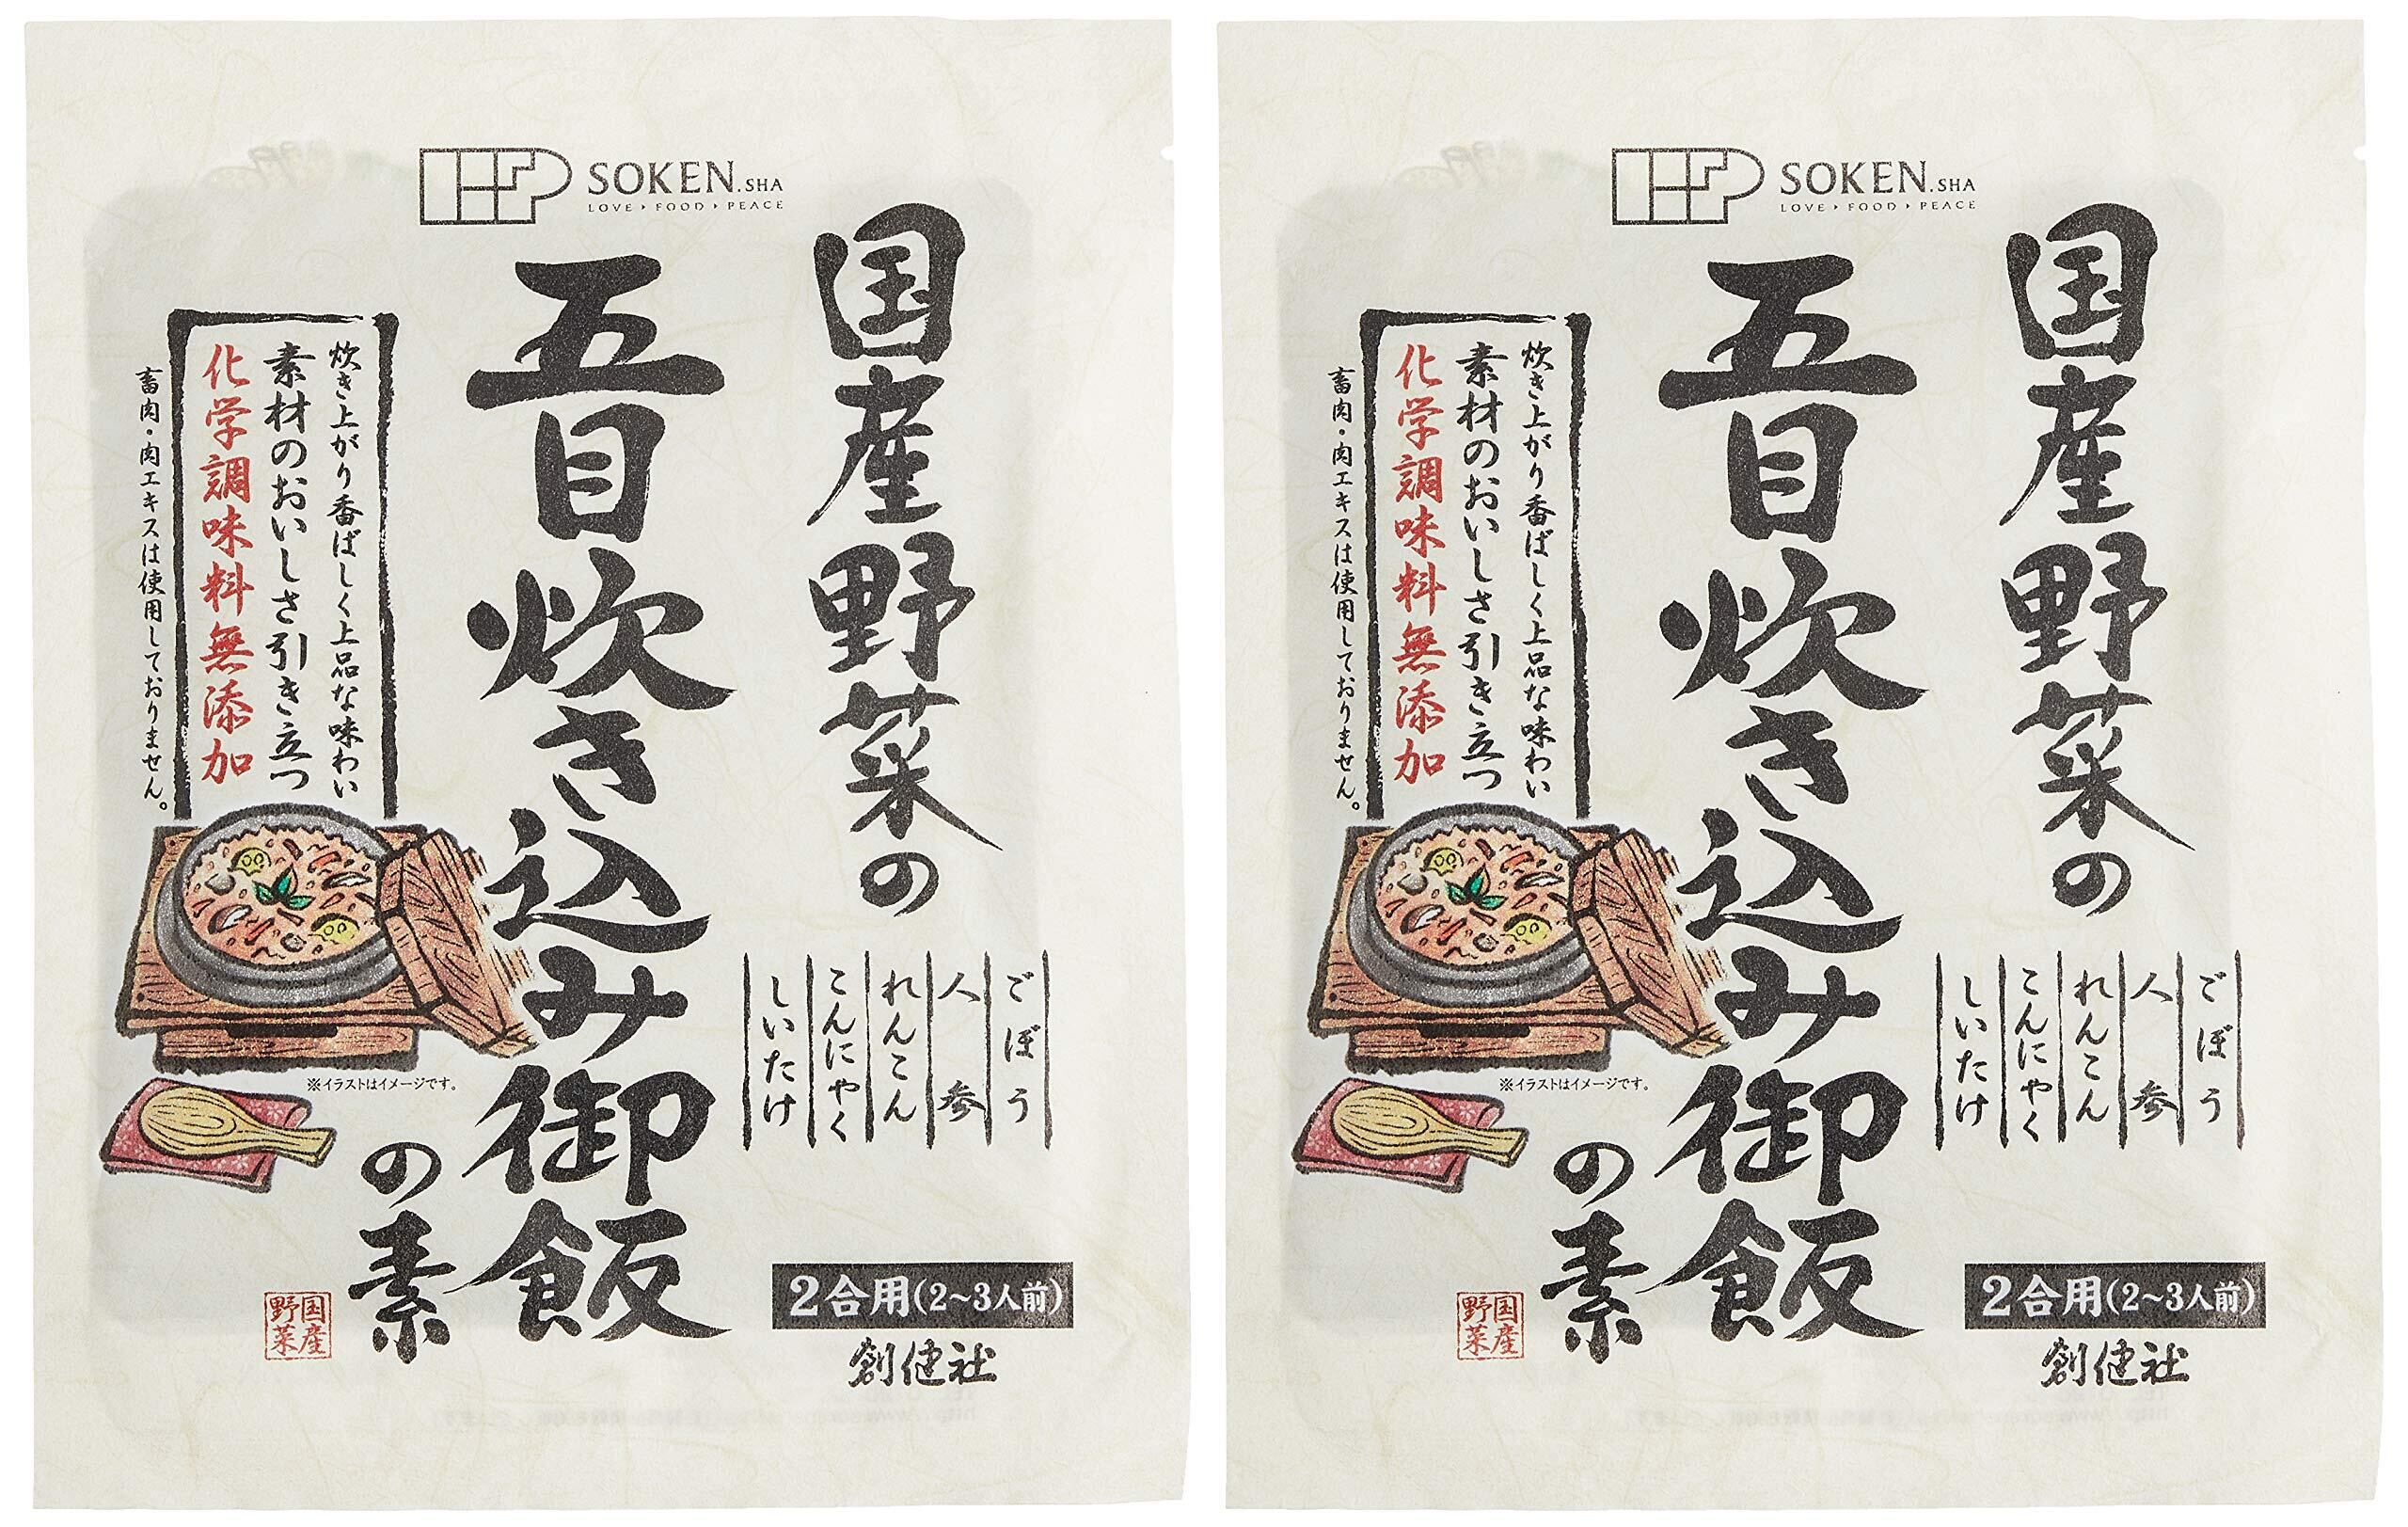 SOKEN.SHA
LOVE › FOOD › PEACE
国産野菜の
五目炊き込み御飯
の素
炊き上がり香ばしく上品な味わい
素材のおいしさ引き立つ
化学調味料無添加
畜肉・肉エキスは使用しておりません。
ごぼう
人参
れんこん
こんにゃく
しいたけ
※イラストはイメージです。
国産
野菜
2合用(2~3人前)
創健社
SOKEN.SHA
LOVE › FOOD › PEACE
国産野菜の
五目炊き込み御飯
の素
炊き上がり香ばしく上品な味わい
素材のおいしさ引き立つ
化学調味料無添加
畜肉・肉エキスは使用しておりません。
ごぼう
人参
れんこん
こんにゃく
しいたけ
※イラストはイメージです。
国産
野菜
2合用(2~3人前)
創健社